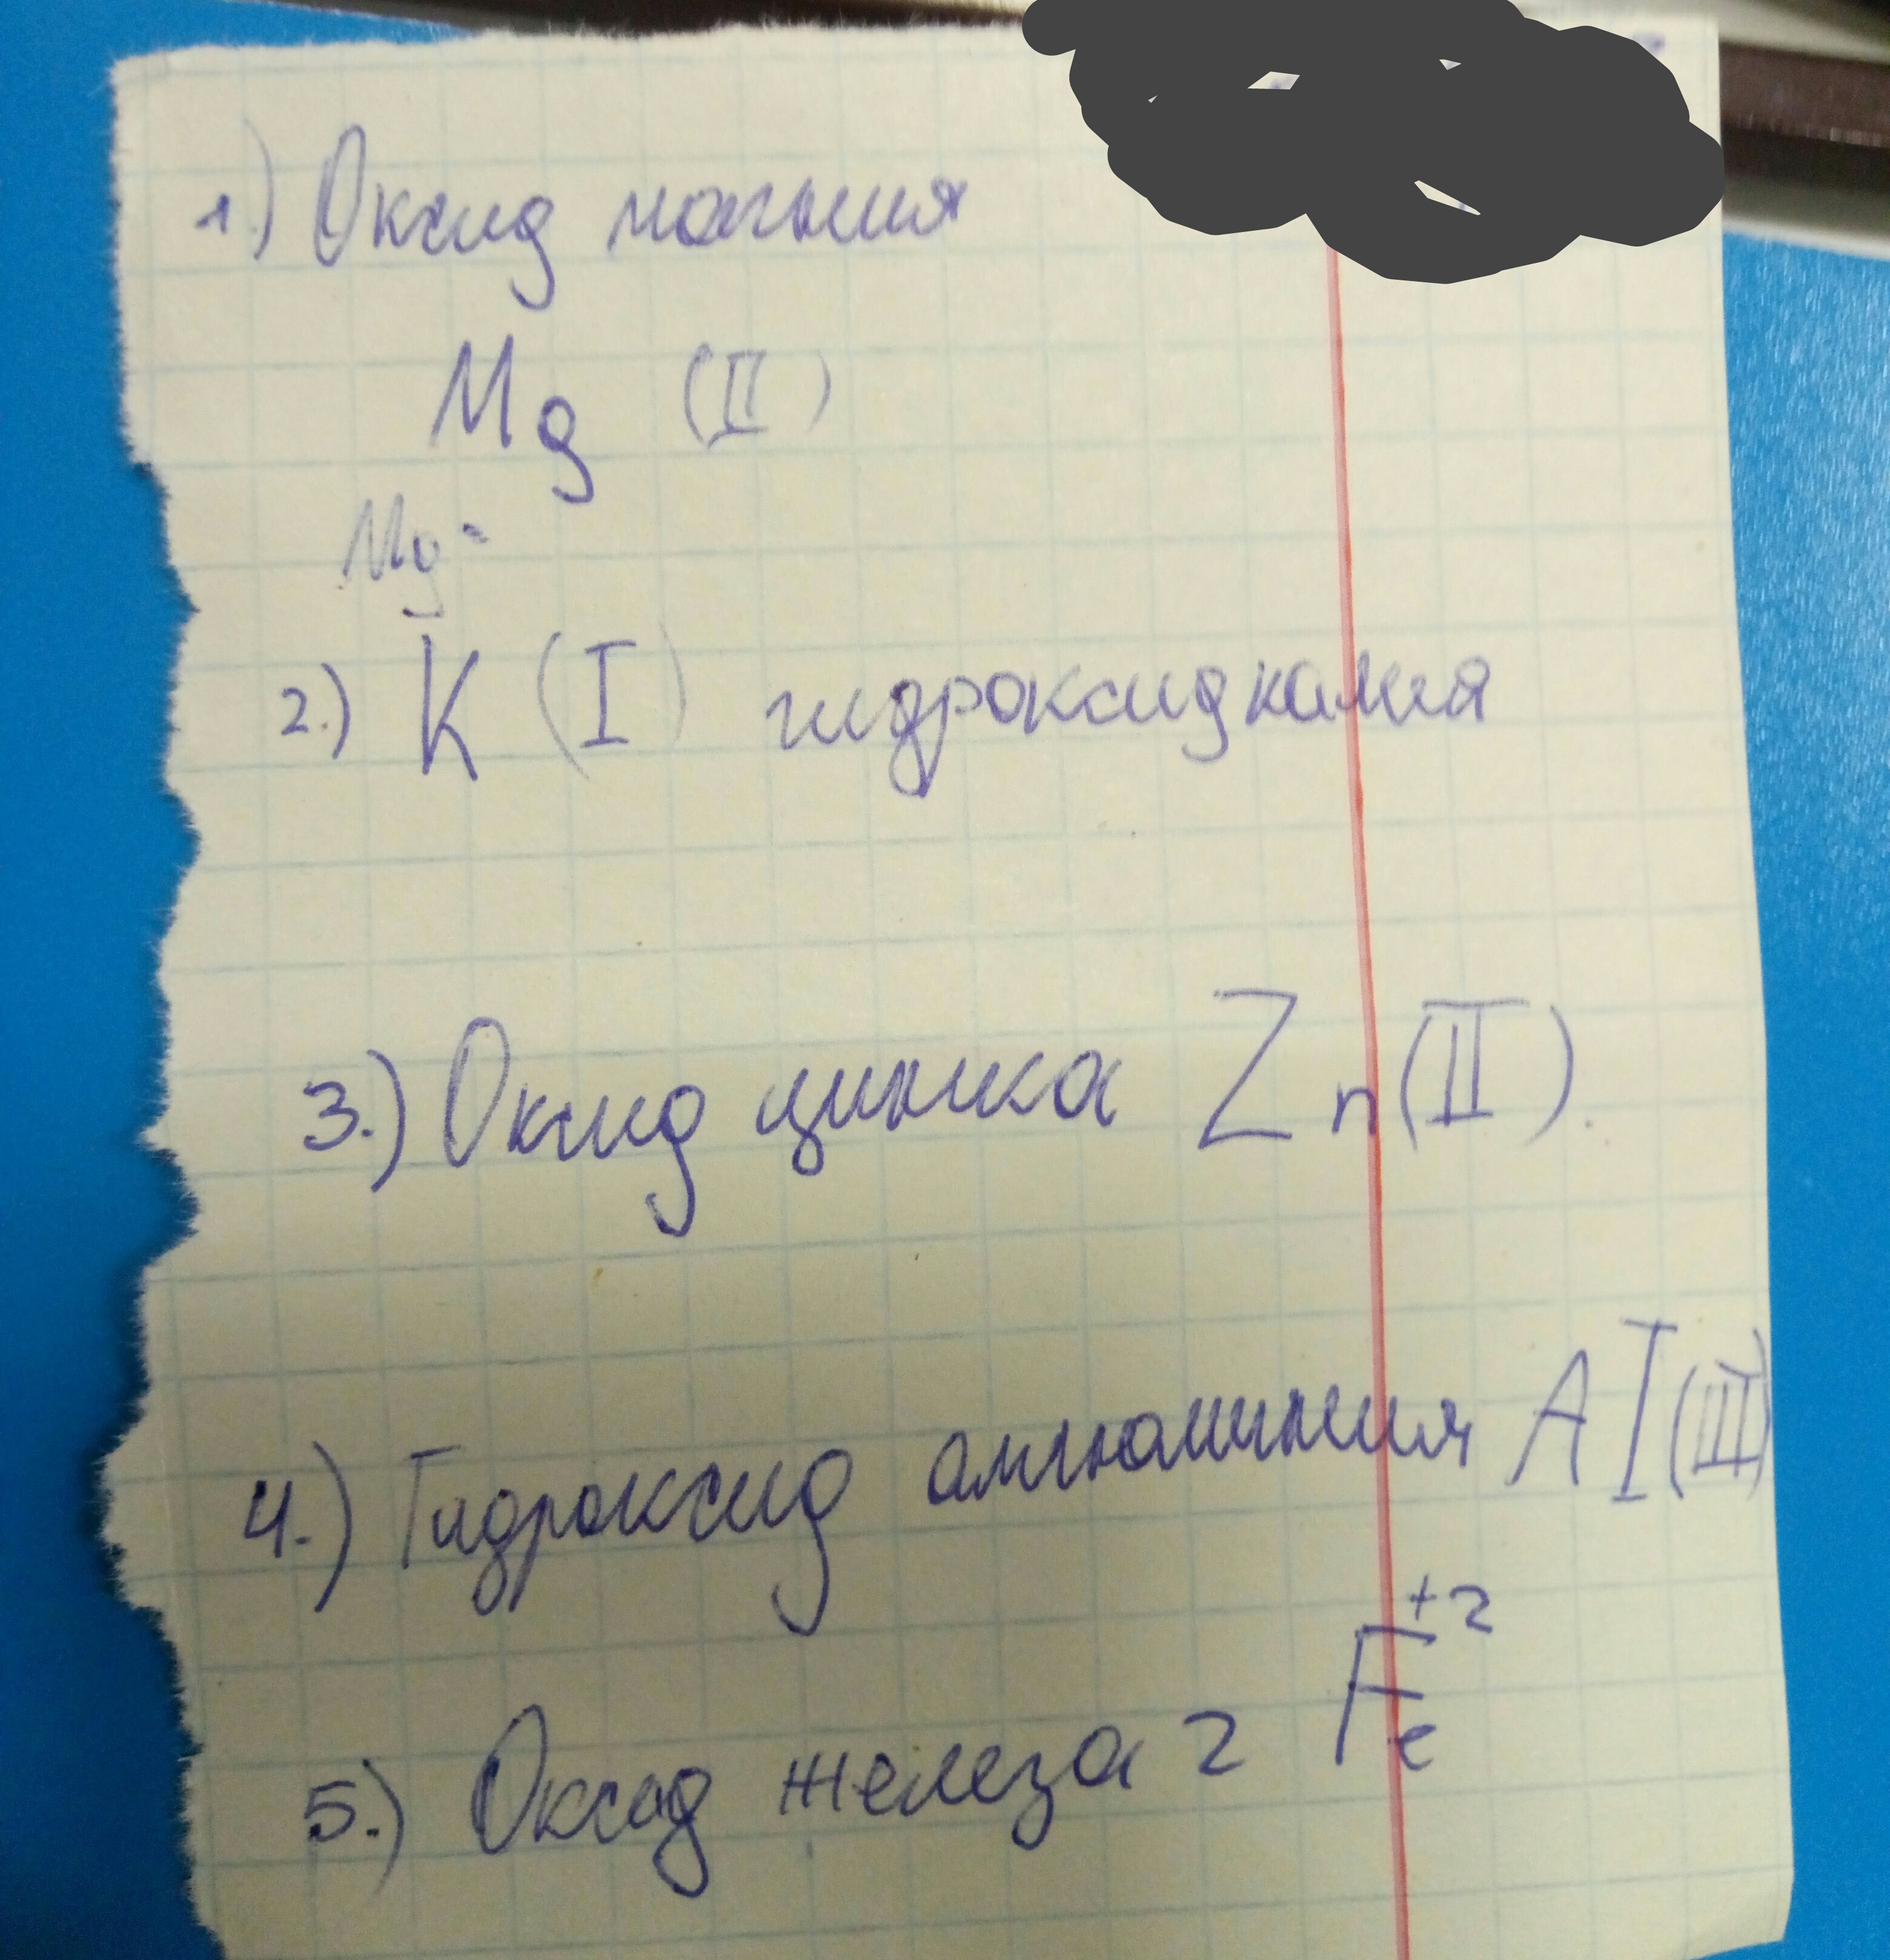 1.) Оксид магния
Mg (II)
Mg
2.) K (I) гидроксид калия
3.) Оксид цинка Zn (II).
4.) Гидроксид алюминия Al (III)
5.) Оксид железа 2 Fe⁺²